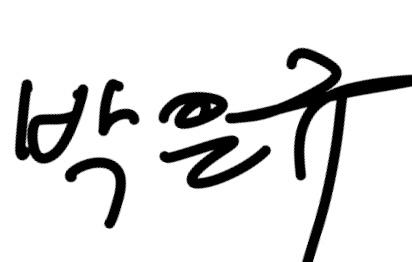 박은규